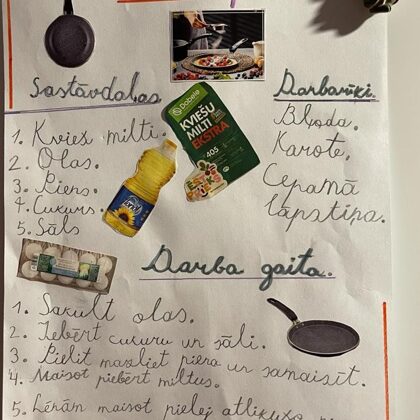 Sastāvdaļas
1. Kvieš milti.
2. Olas.
3. Piens.
4. Cukurs.
5. Sāls
Dobele
KVIEŠU
MILTI
EKSTRA
405
Darbarīki.
Bļoda.
Karote.
Cepamā
lāpstiņa.
Darba gaita.
1. Sakult olas.
2. Iebērt cukuru un sāli.
3. Pieliet mazliet piena un samaisīt.
4. Maisot piebērt miltus.
5. Lēnām maisot pielej atlikušo